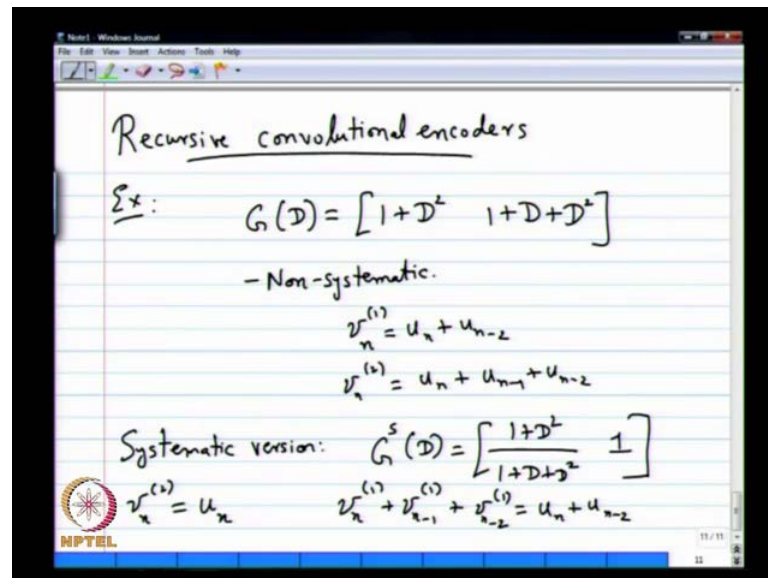 Note1 - Windows Journal
File Edit View Insert Actions Tools Help
Recursive convolutional encoders
Ex: G(D) = [1+D² 1+D+D²]
- Non-systematic.
v_n^(1) = u_n + u_{n-2}
v_n^(2) = u_n + u_{n-1} + u_{n-2}
Systematic version: G^s(D) = [(1+D²)/(1+D+D²) 1]
v_n^(2) = u_n v_n^(1) + v_{n-1}^(1) + v_{n-2}^(1) = u_n + u_{n-2}
NPTEL
11 / 11
11